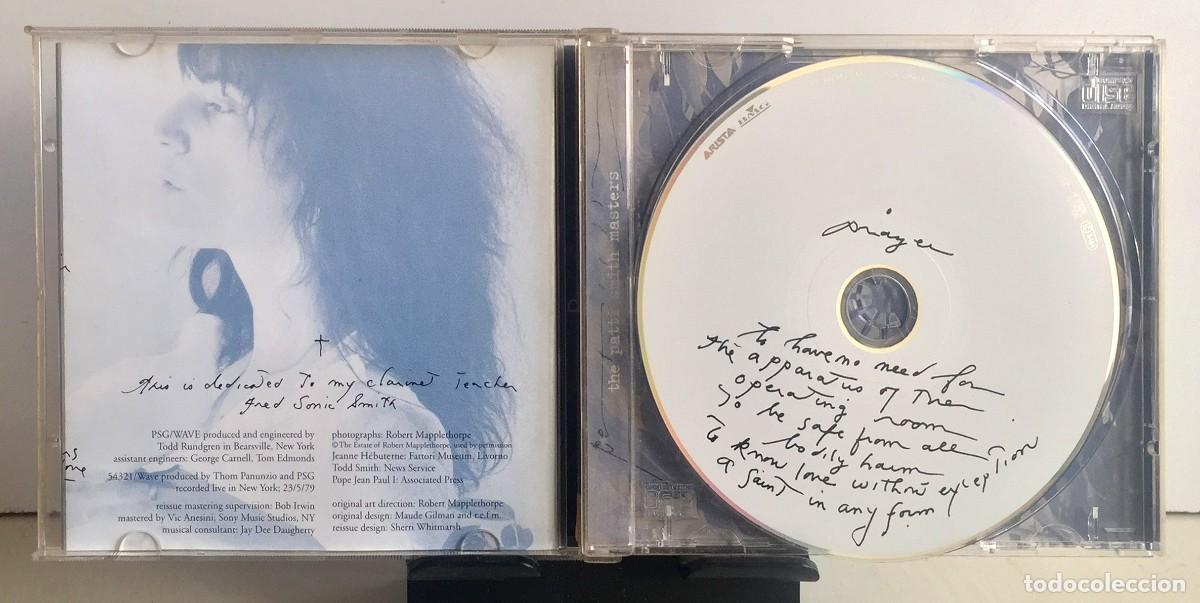 this is dedicated to my clarinet teacher
fred sonic smith
PSG/WAVE produced and engineered by
Todd Rundgren in Bearsville, New York
assistant engineers: George Carnell, Tom Edmonds
54321/Wave produced by Thom Panunzio and PSG
recorded live in New York; 23/5/79
reissue mastering supervision: Bob Irwin
mastered by Vic Anesini, Sony Music Studios, NY
musical consultant: Jay Dee Daugherty
photographs: Robert Mapplethorpe
©The Estate of Robert Mapplethorpe, used by permission
Jeanne Hébuterne: Fattori Museum, Livorno
Todd Smith: News Service
Pope Jean Paul I: Associated Press
original art direction: Robert Mapplethorpe
original design: Maude Gilman and r.e.f.m.
reissue design: Sherri Whitmarsh
the patti smith masters
ARISTA BMG
COMPACT
DISC
DIGITAL AUDIO
prayer
to have no need for
the apparatus of the
operating room
to be safe from all
bodily harm
to know love without exception
a saint in any form
todocoleccion